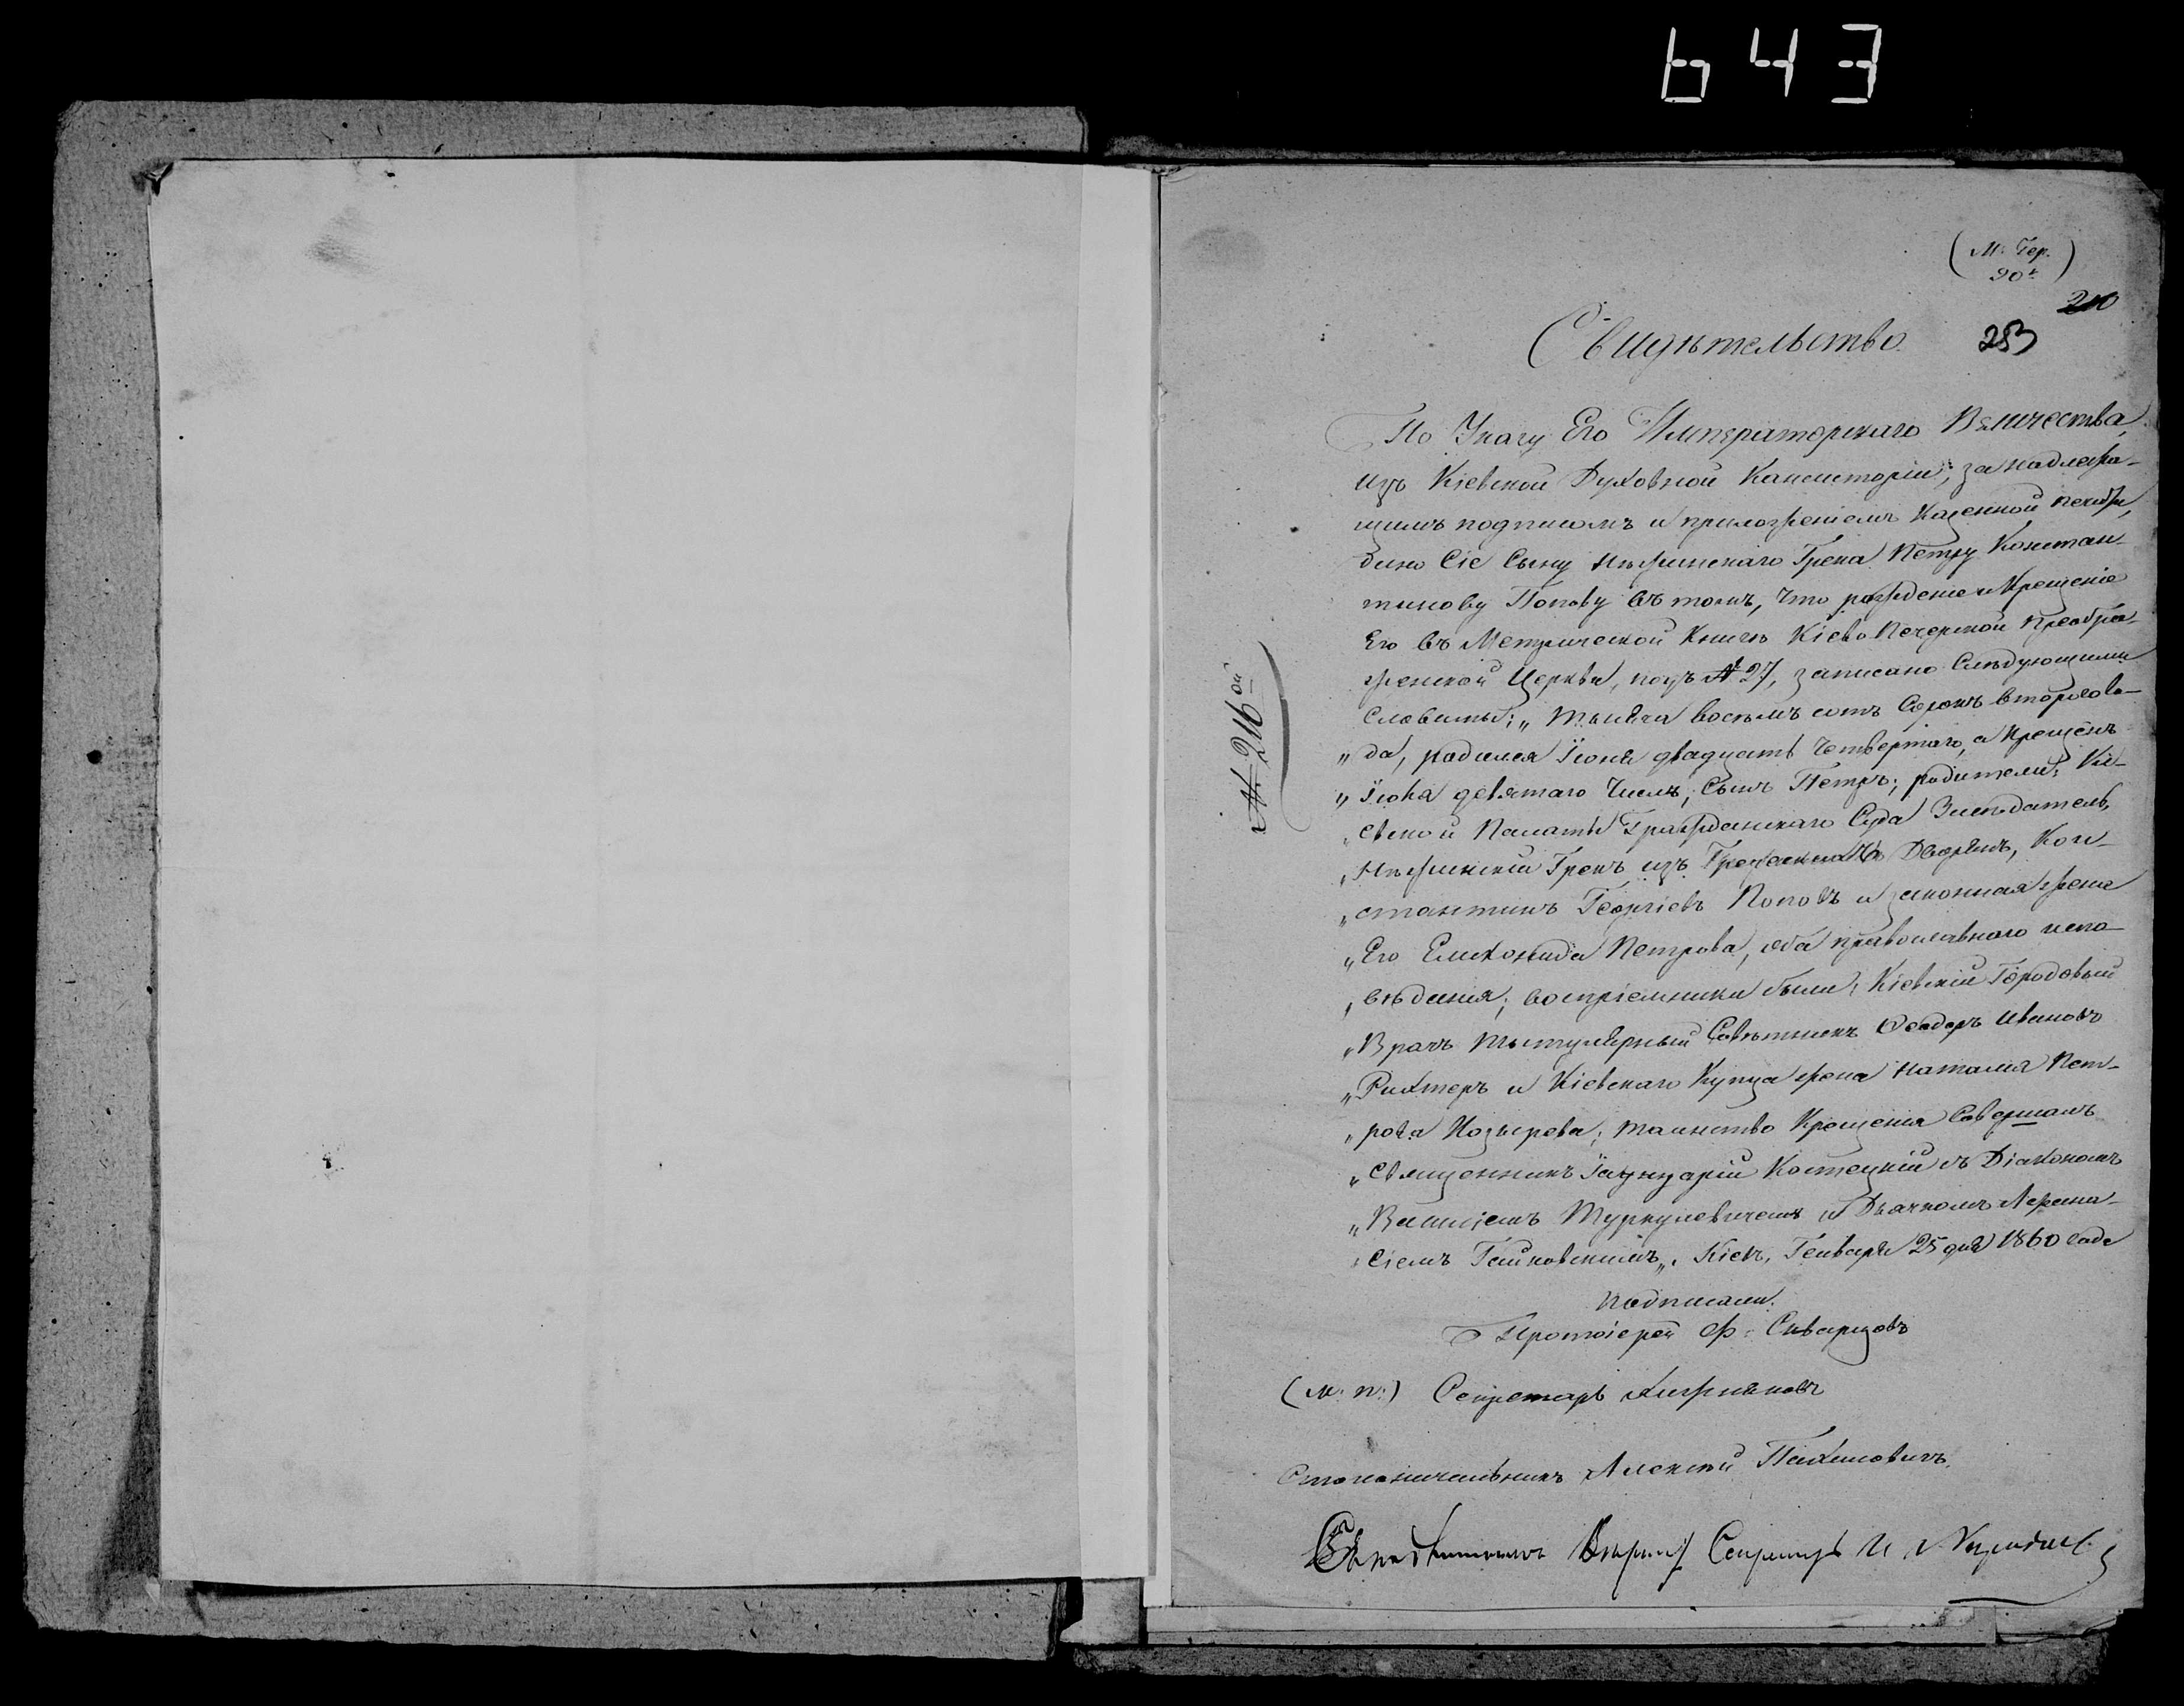 643
(М. Гер.
90к.)
210
283
Свидѣтельство.
По Указу Его Императорскаго Величества,
изъ Кіевской Духовной Консисторіи, за надлежа-
щимъ подписомъ и приложеніемъ Казенной печати,
дано сіе Сыну Нѣжинскаго Грека Петру Констан-
тинову Попову въ томъ, что рожденіе и Крещеніе
Его въ Метрической Книгѣ Кіево Печерской Преобра-
женской Церкви, подъ № 27, записано Слѣдующими
Словами: „тысяча восемъ сотъ Сорокъ втораго го-
„да, родился Іюня двадцать Четвертаго, а Крещенъ
„Іюля девятаго Числъ, Сынъ Петръ; родители: Кі-
„евской Палаты Гражданскаго Суда Засѣдатель,
„Нѣжинскій Грекъ изъ Греческихъ Дворянъ, Кон-
„стантинъ Георгіевъ Поповъ и законная жена
„Его Еликонида Петрова, оба православнаго испо-
„вѣданія; воспріемники были: Кіевскій Городовый
„Врачъ Титулярный Совѣтникъ Ѳеодоръ Ивановъ
„Рихтеръ и Кіевскаго Купца жена Наталія Пет-
„рова Козырева; таинство Крещенія Совершалъ
„Священникъ Іануарій Костецкій съ Діакономъ
„Василіемъ Туркулевичемъ и Дьячкомъ Афана-
„сіемъ Гайковскимъ„. Кіевъ, Генваря 25 дня 1860 года
Подписали:
Протоіерей Ф. Скварцовъ
(М. П.) Секретарь Лижняковъ
Столоначальникъ Алексѣй Пахаловичъ.
Съ подлиннымъ вѣрно: Секретарь И.
№ 216ой